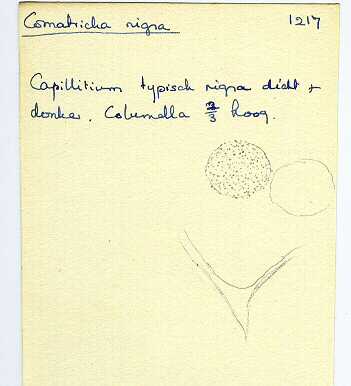 Comatricha nigra 1217
Capillitium typisch nigra dicht +
donker. Columella 2/3 hoog.